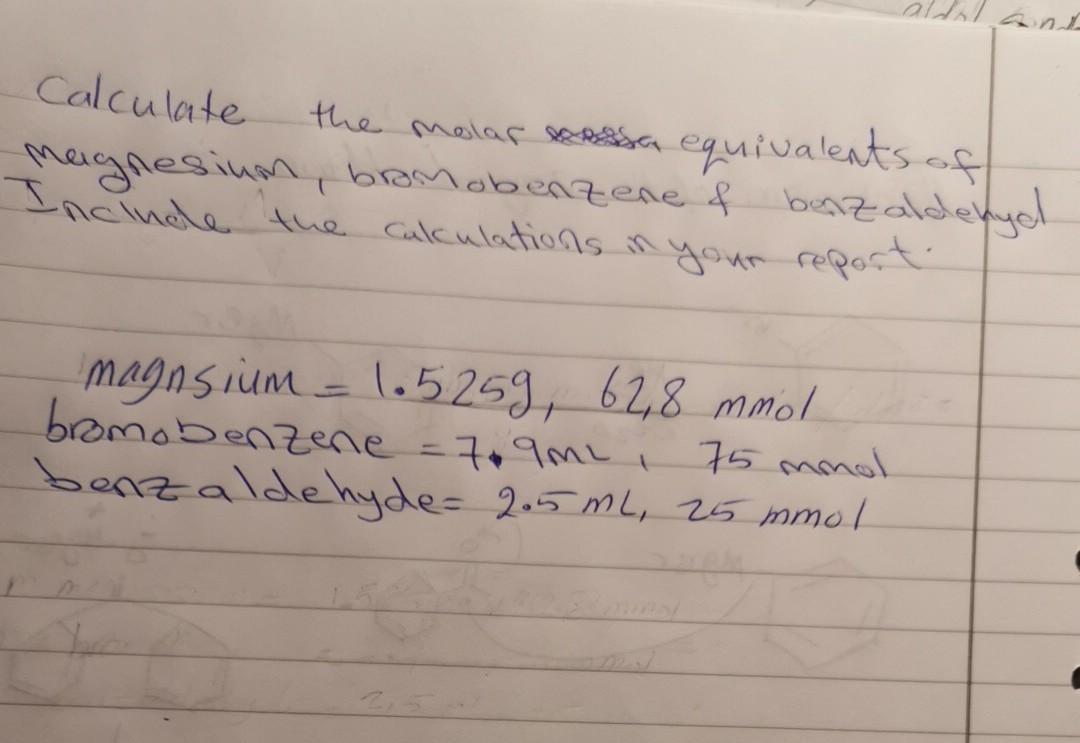 aldol
Calculate the molar equivalents of
magnesium, bromobenzene & benzaldehyd
Include the calculations in your report.
magnsium = 1.525g, 62,8 mmol
bromobenzene = 7.9mL, 75 mmol
benzaldehyde= 2.5 mL, 25 mmol